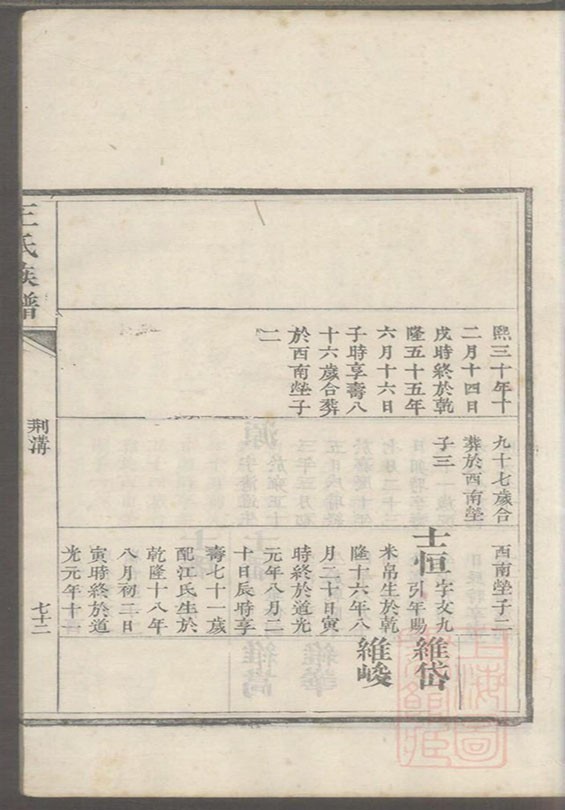 熙三十年十
二月十四日
戌時終於乾
隆五十五年
六月十六日
子時享壽八
十六歲合葬
於西南塋子
二
九十七歲合
葬於西南塋
子三
西南塋子二
士恒字文九
引年賜
米帛生於乾
隆十六年八
月二十日寅
時終於道光
元年八月二
十日辰時享
壽七十一歲
配江氏生於
乾隆十八年
八月初二日
寅時終於道
光元年十一
維岱
維峻
王氏族譜
荆溝
七十二